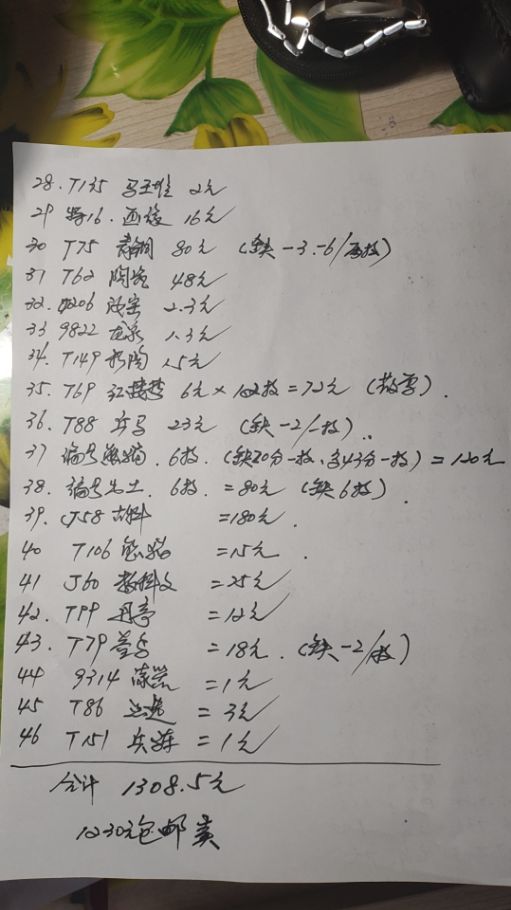 28. T135 马王堆 2元
29 特16. 画像 16元
30 T75 青铜 80元 (缺-3.-6/两枚)
31 T62 陶瓷 48元
32. 0206 汝窑 2.3元
33 9822 龙泉 1.3元
34. T149 彩陶 1.5元
35. T69 红楼梦 6元×12枚=72元 (散票).
36. T88 兵马 23元 (缺-2/一枚).
37 编号熊猫. 6枚. (缺20分一枚、多43分一枚) =120元
38. 编号出土. 6枚. =80元 (缺6枚).
39. J58 古科 =180元.
40 T106 熊猫 =15元.
41 J60 教科文 =25元
42. T99 丹亭 =12元
43. T79 益鸟 =18元. (缺-2/枚)
44 9314 漆器 =1元
45 T86 =3元
46 T151 =1元
合计 1308.5元
1230元包邮卖